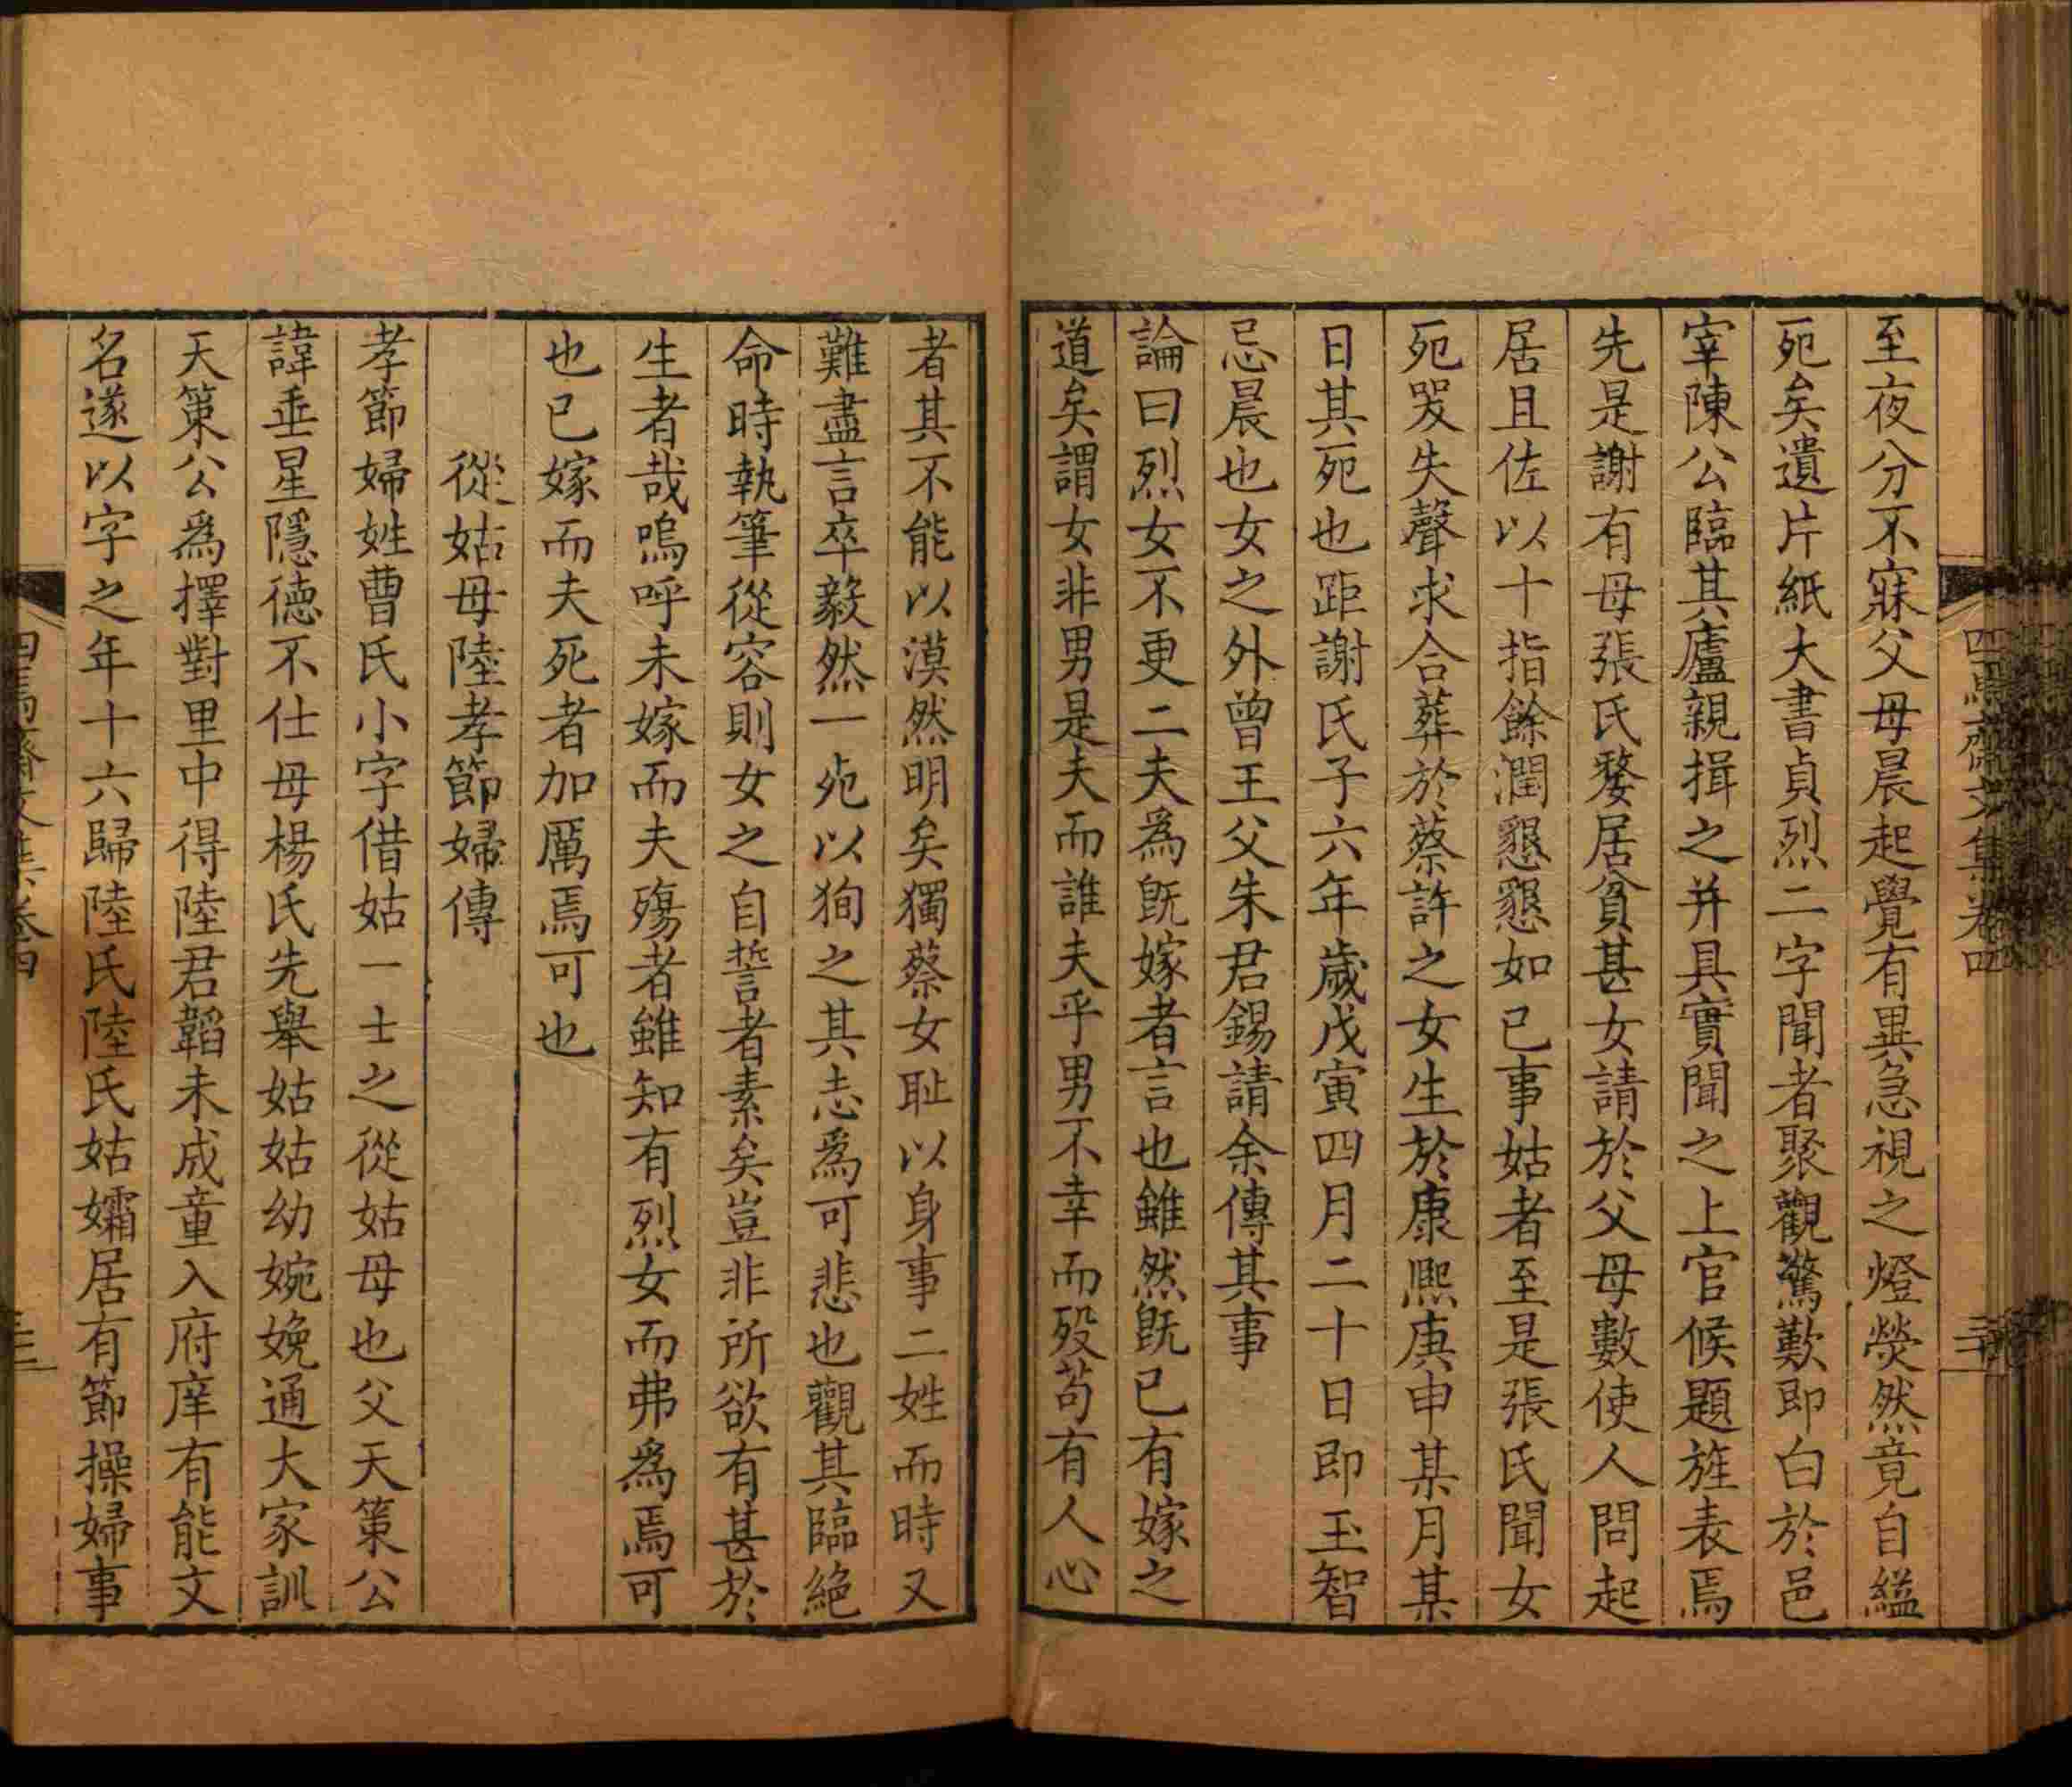 至夜分不寐父母晨起覺有異急視之燈熒然竟自縊
死矣遺片紙大書貞烈二字聞者聚觀驚歎即白於邑
宰陳公臨其廬親揖之并具實聞之上官候題旌表焉
先是謝有母張氏婺居貧甚女請於父母數使人問起
居且佐以十指餘潤懇懇如已事姑者至是張氏聞女
死哭失聲求合葬於蔡許之女生於康熙庚申某月某
日其死也距謝氏子六年歲戊寅四月二十日即玉智
忌晨也女之外曾王父朱君錫請余傳其事
論曰烈女不更二夫爲旣嫁者言也雖然旣已有嫁之
道矣謂女非男是夫而誰夫乎男不幸而歿苟有人心
者其不能以漠然明矣獨蔡女耻以身事二姓而時又
難盡言卒毅然一死以狥之其志爲可悲也觀其臨絕
命時執筆從容則女之自誓者素矣豈非所欲有甚於
生者哉嗚呼未嫁而夫殤者雖知有烈女而弗爲焉可
也已嫁而夫死者加厲焉可也
從姑母陸孝節婦傳
孝節婦姓曹氏小字借姑一士之從姑母也父天策公
諱垂星隱德不仕母楊氏先舉姑姑幼婉娩通大家訓
天策公爲擇對里中得陸君韜未成童入府庠有能文
名遂以字之年十六歸陸氏陸氏姑孀居有節操婦事
四焉齋文集卷四